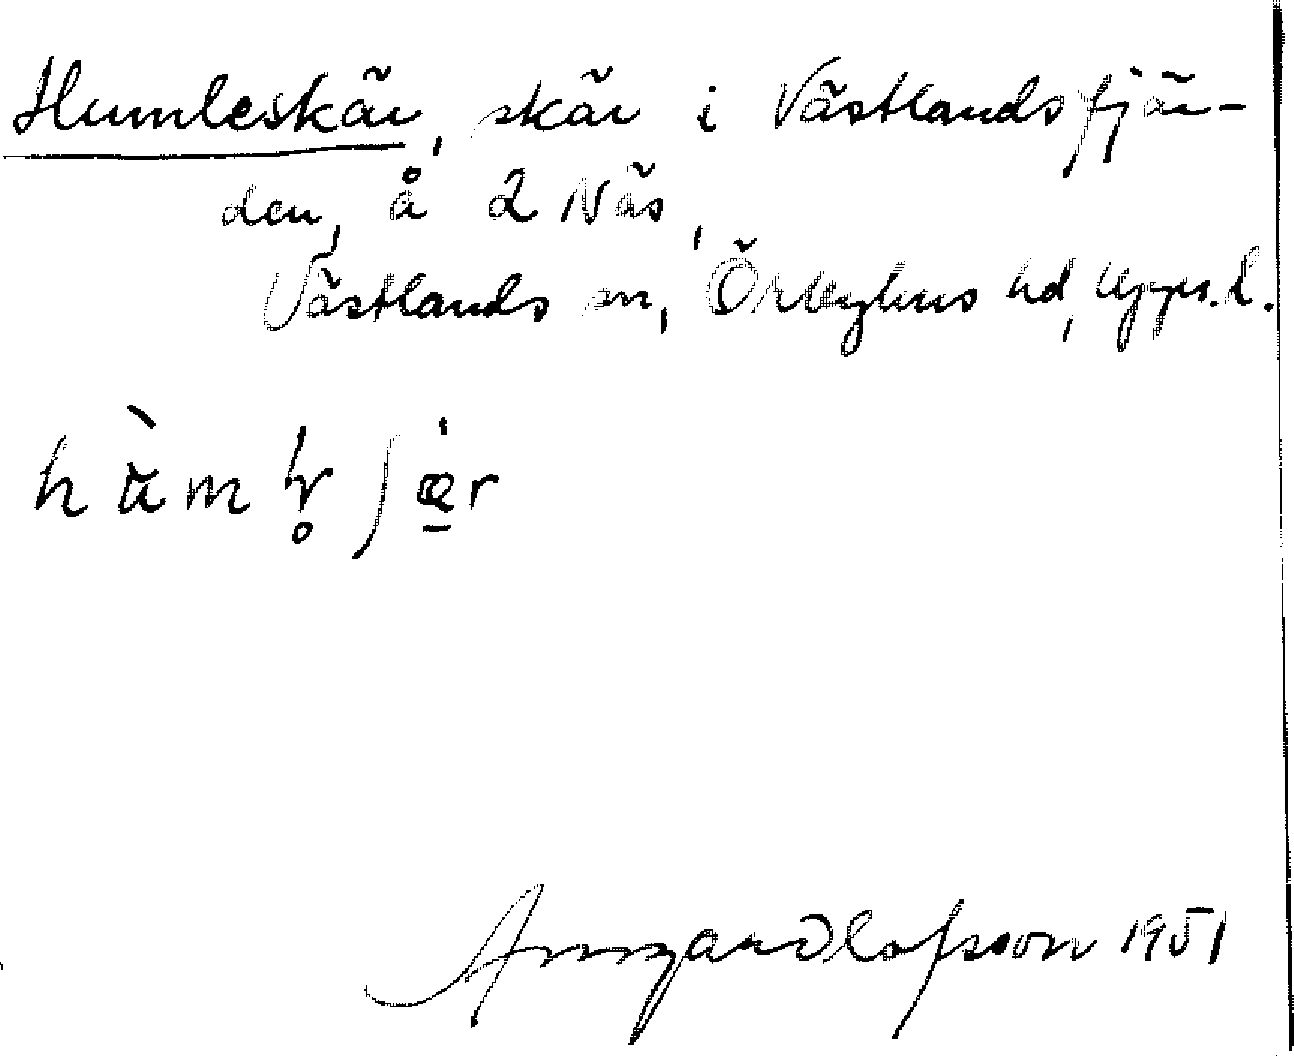 Humleskär, skär i Västlandsfjär-
den, å 2 Näs,
Västlands sn, Örbyhus hd, Upps. l.
Olofsson 1951